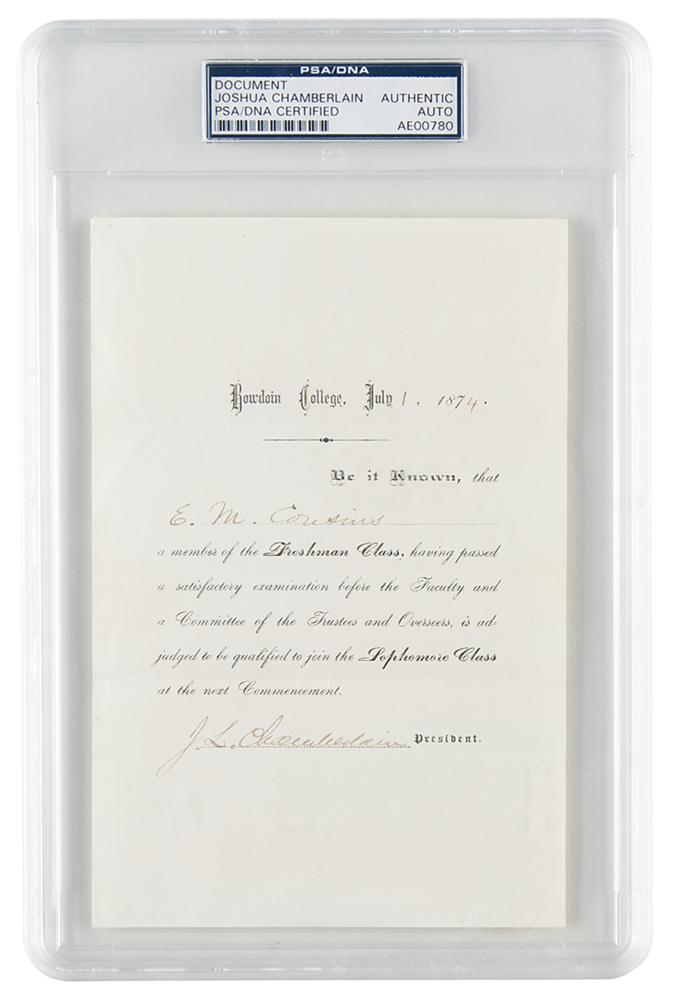 PSA/DNA
DOCUMENT
JOSHUA CHAMBERLAIN AUTHENTIC
PSA/DNA CERTIFIED AUTO
AE00780
Bowdoin College, July 1, 1874.
Be it Known, that
E. M. Cousins
a member of the Freshman Class, having passed
a satisfactory examination before the Faculty and
a Committee of the Trustees and Overseers, is ad-
judged to be qualified to join the Sophomore Class
at the next Commencement.
J. L. Chamberlain President.